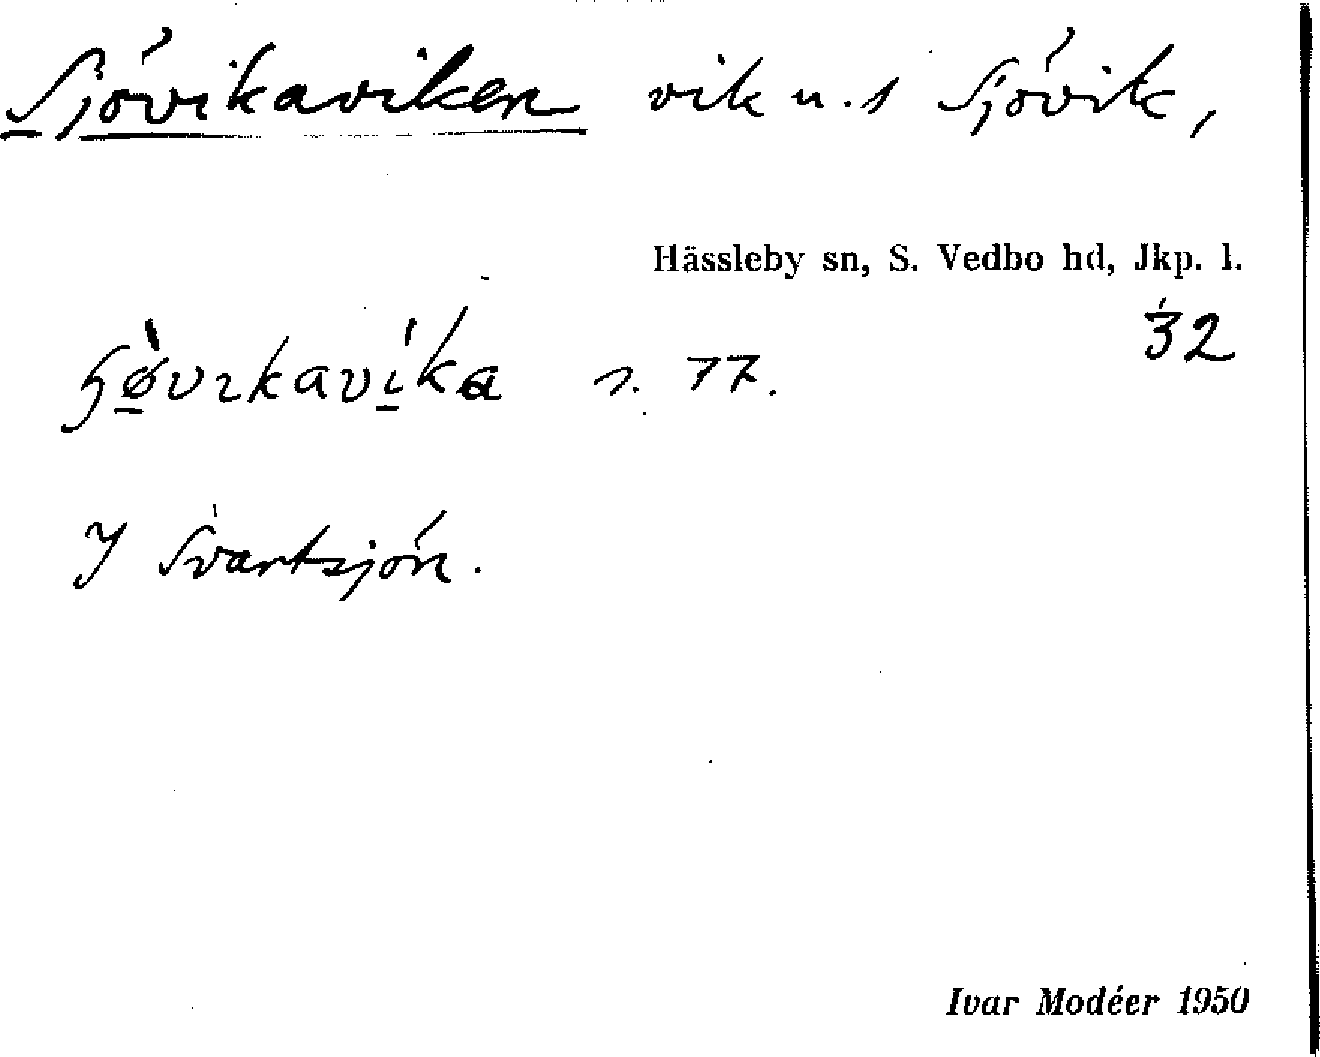 Sjövikaviken vik u.s Sjövik,
Hässleby sn, S. Vedbo hd, Jkp. l.
32
s. 77.
I Svartsjön.
Ivar Modéer 1950